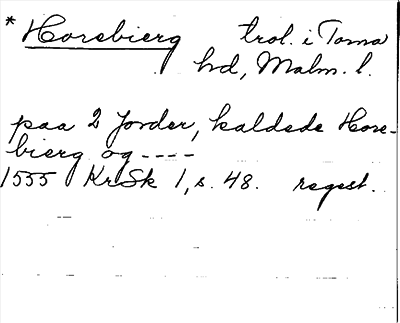 * Horebierg trol. i Torna
hd, Malm. l.
paa 2 Jorder, kaldede Hore-
bierg og ----
1555 KrSk 1, s. 48. regest.